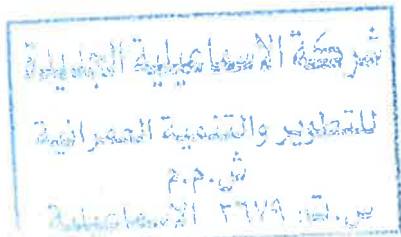 شركة الاسماعيلية الجديدة
للتطوير والتنمية العمرانية
ش.م.م
س.ت: ٣٦٧٩ الإسماعيلية